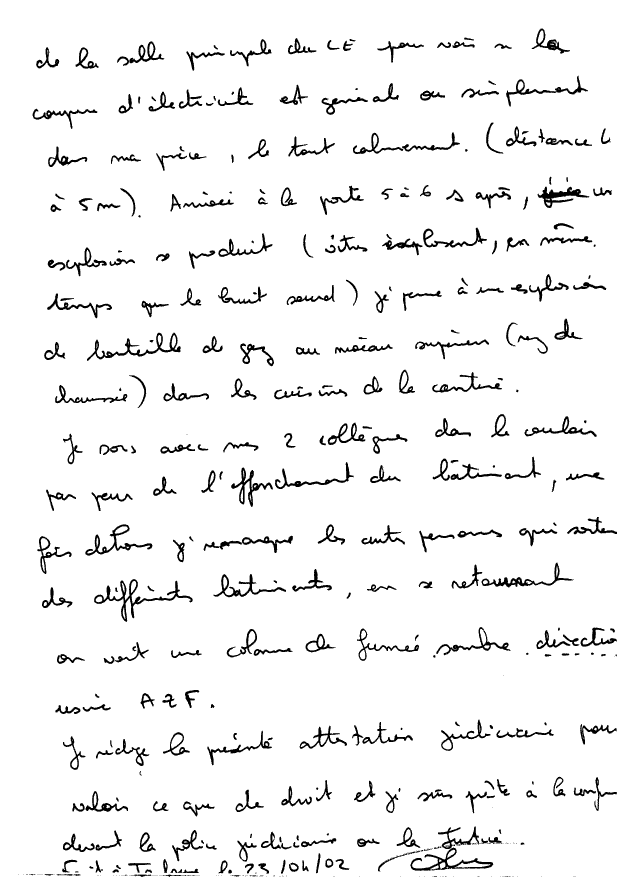 de la salle principale du CE pour voir si la
coupure d'électricité est générale ou simplement
dans ma pièce, le tout calmement. (distance 4
à 5m). Arrivé à la porte 5 à 6 s après, une
explosion se produit (vitres explosent, en même
temps que le bruit sourd) j'ai pensé à une explosion
de bouteille de gaz au niveau supérieur (rez de
chaussée) dans les cuisines de la cantine.
Je sors avec mes 2 collègues dans le couloir
par peur de l'effondrement du bâtiment, une
fois dehors j'ai remarqué les autres personnes qui sorten
des différents bâtiments, en se retournant
on voit une colonne de fumée sombre directio
usine AZF.
Je rédige la présente attestation judiciaire pour
valoir ce que de droit et je suis prête à la confir
devant la police judiciaire ou la Justice.
Fait à Toulouse le 23/04/02